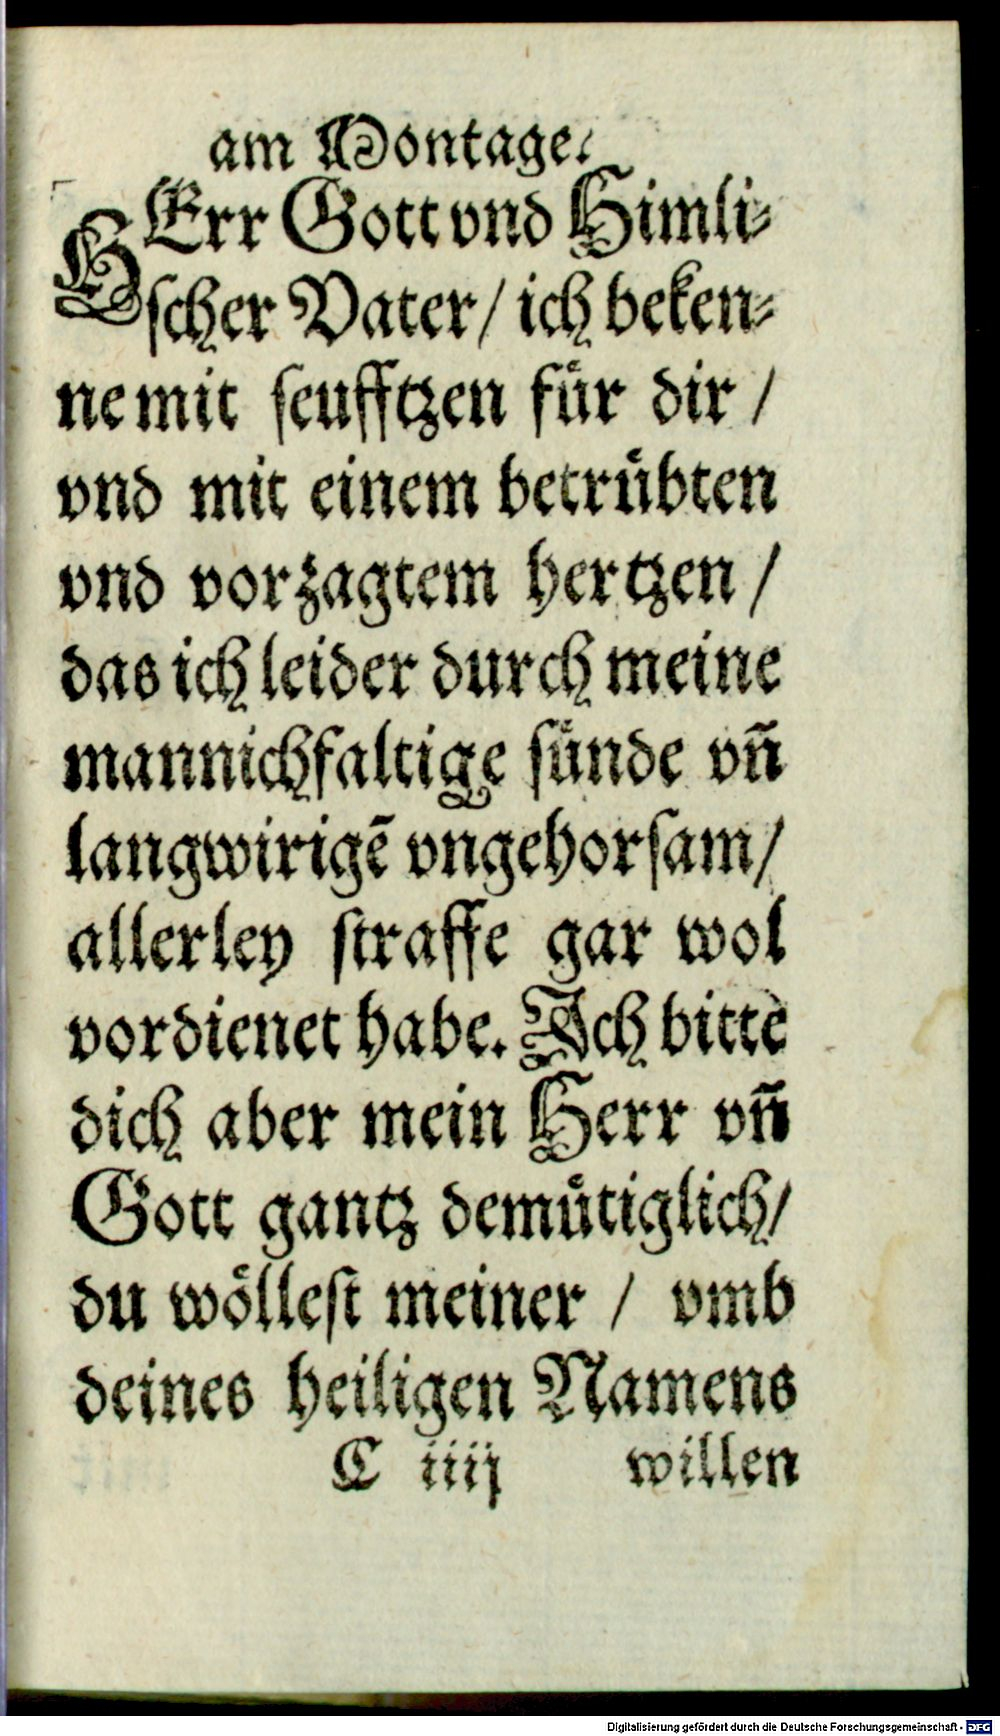 am Montage.
HErr Gott vnd Himli⸗
scher Vater/ ich beken⸗
ne mit seufftzen für dir /
vnd mit einem betrübten
vnd vorzagtem hertzen /
das ich leider durch meine
mannichfaltige sünde vñ
langwirigẽ vngehorsam/
allerley straffe gar wol
vordienet habe. Ich bitte
dich aber mein Herr vñ
Gott gantz demütiglich/
du wöllest meiner / vmb
deines heiligen Namens
C iiij willen
Digitalisierung gefördert durch die Deutsche Forschungsgemeinschaft - DFG